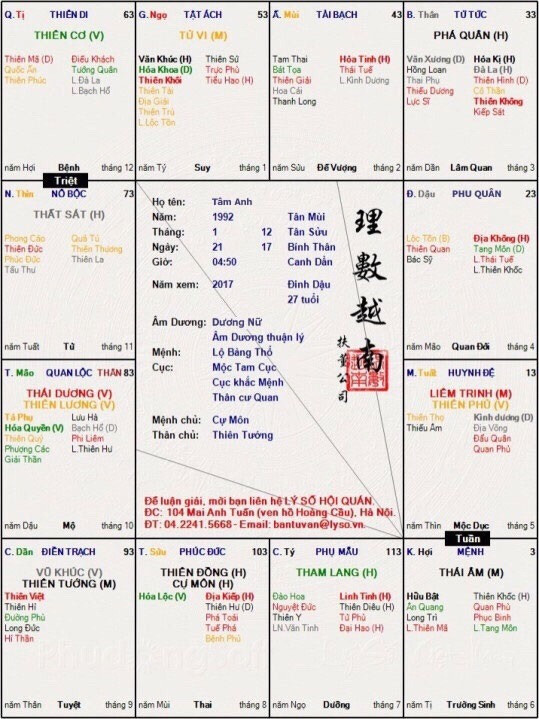 Q. Tị THIÊN DI 63
THIÊN CƠ (V)
Thiên Mã (D) Điếu Khách
Quốc Ấn Tướng Quân
Thiên Phúc L.Đà La
L.Bạch Hổ
năm Hợi Bệnh tháng 12
G. Ngọ TẬT ÁCH 53
TỬ VI (M)
Văn Khúc (H) Thiên Sứ
Hóa Khoa (D) Trực Phù
Thiên Khôi Tiểu Hao (H)
Thiên Tài
Địa Giải
Thiên Trù
L.Lộc Tồn
năm Tý Suy tháng 1
Ấ. Mùi TÀI BẠCH 43
Tam Thai Hỏa Tinh (H)
Bát Tọa Thái Tuế
Thiên Giải L.Kình Dương
Hoa Cái
Thanh Long
năm Sửu Đế Vượng tháng 2
B. Thân TỬ TỨC 33
PHÁ QUÂN (H)
Văn Xương (D) Hóa Kị (H)
Hồng Loan Đà La (H)
Thai Phụ Thiên Hình (D)
Thiếu Dương Cô Thần
Lực Sĩ Thiên Không
Kiếp Sát
năm Dần Lâm Quan tháng 3
Triệt
N. Thìn NÔ BỘC 73
THẤT SÁT (H)
Phong Cáo Quả Tú
Thiên Đức Thiên Thương
Phúc Đức Thiên La
Tấu Thư
năm Tuất Tử tháng 11
Họ tên: Tâm Anh
Năm: 1992 Tân Mùi
Tháng: 1 12 Tân Sửu
Ngày: 21 17 Bính Thân
Giờ: 04:50 Canh Dần
Năm xem: 2017 Đinh Dậu
27 tuổi
Âm Dương: Dương Nữ
Âm Dương thuận lý
Mệnh: Lộ Bàng Thổ
Cục: Mộc Tam Cục
Cục khắc Mệnh
Thân cư Quan
Mệnh chủ: Cự Môn
Thân chủ: Thiên Tướng
理數越南
扶董公司
Để luận giải, mời bạn liên hệ LÝ SỐ HỘI QUÁN.
ĐC: 104 Mai Anh Tuấn (ven hồ Hoàng Cầu), Hà Nội.
ĐT: 04.2241.5668 - Email: bantuvan@lyso.vn.
Đ. Dậu PHU QUÂN 23
Lộc Tồn (B) Địa Không (H)
Thiên Quan Tang Môn (D)
Bác Sỹ L.Thái Tuế
L.Thiên Khốc
năm Mão Quan Đới tháng 4
T. Mão QUAN LỘC THÂN 83
THÁI DƯƠNG (V)
THIÊN LƯƠNG (V)
Tả Phụ Lưu Hà
Hóa Quyền (V) Bạch Hổ (D)
Thiên Quý Phi Liêm
Phượng Các L.Thiên Hư
Giải Thần
năm Dậu Mộ tháng 10
M. Tuất HUYNH ĐỆ 13
LIÊM TRINH (M)
THIÊN PHỦ (V)
Thiên Thọ Kình dương (D)
Thiếu Âm Địa Võng
Đẩu Quân
Quan Phù
năm Thìn Mộc Dục tháng 5
Tuần
C. Dần ĐIỀN TRẠCH 93
VŨ KHÚC (V)
THIÊN TƯỚNG (M)
Thiên Việt
Thiên Hỉ
Đường Phù
Long Đức
Hỉ Thần
năm Thân Tuyệt tháng 9
T. Sửu PHÚC ĐỨC 103
THIÊN ĐỒNG (H)
CỰ MÔN (H)
Hóa Lộc (V) Địa Kiếp (H)
Thiên Hư (D)
Phá Toái
Tuế Phá
Bệnh Phù
năm Mùi Thai tháng 8
C. Tý PHỤ MẪU 113
THAM LANG (H)
Đào Hoa Linh Tinh (H)
Nguyệt Đức Thiên Diêu (H)
Thiên Y Tử Phù
LN.Văn Tinh Đại Hao (H)
năm Ngọ Dưỡng tháng 7
K. Hợi MỆNH 3
THÁI ÂM (M)
Hữu Bật Thiên Khốc (H)
Ân Quang Quan Phủ
Long Trì Phục Binh
L.Thiên Mã L.Tang Môn
năm Tị Trường Sinh tháng 6